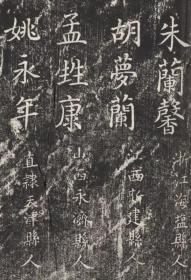 朱蘭馨 浙江海鹽縣人
胡夢蘭 江西新建縣人
孟甡康 山西永濟縣人
姚永年 直隸天津縣人